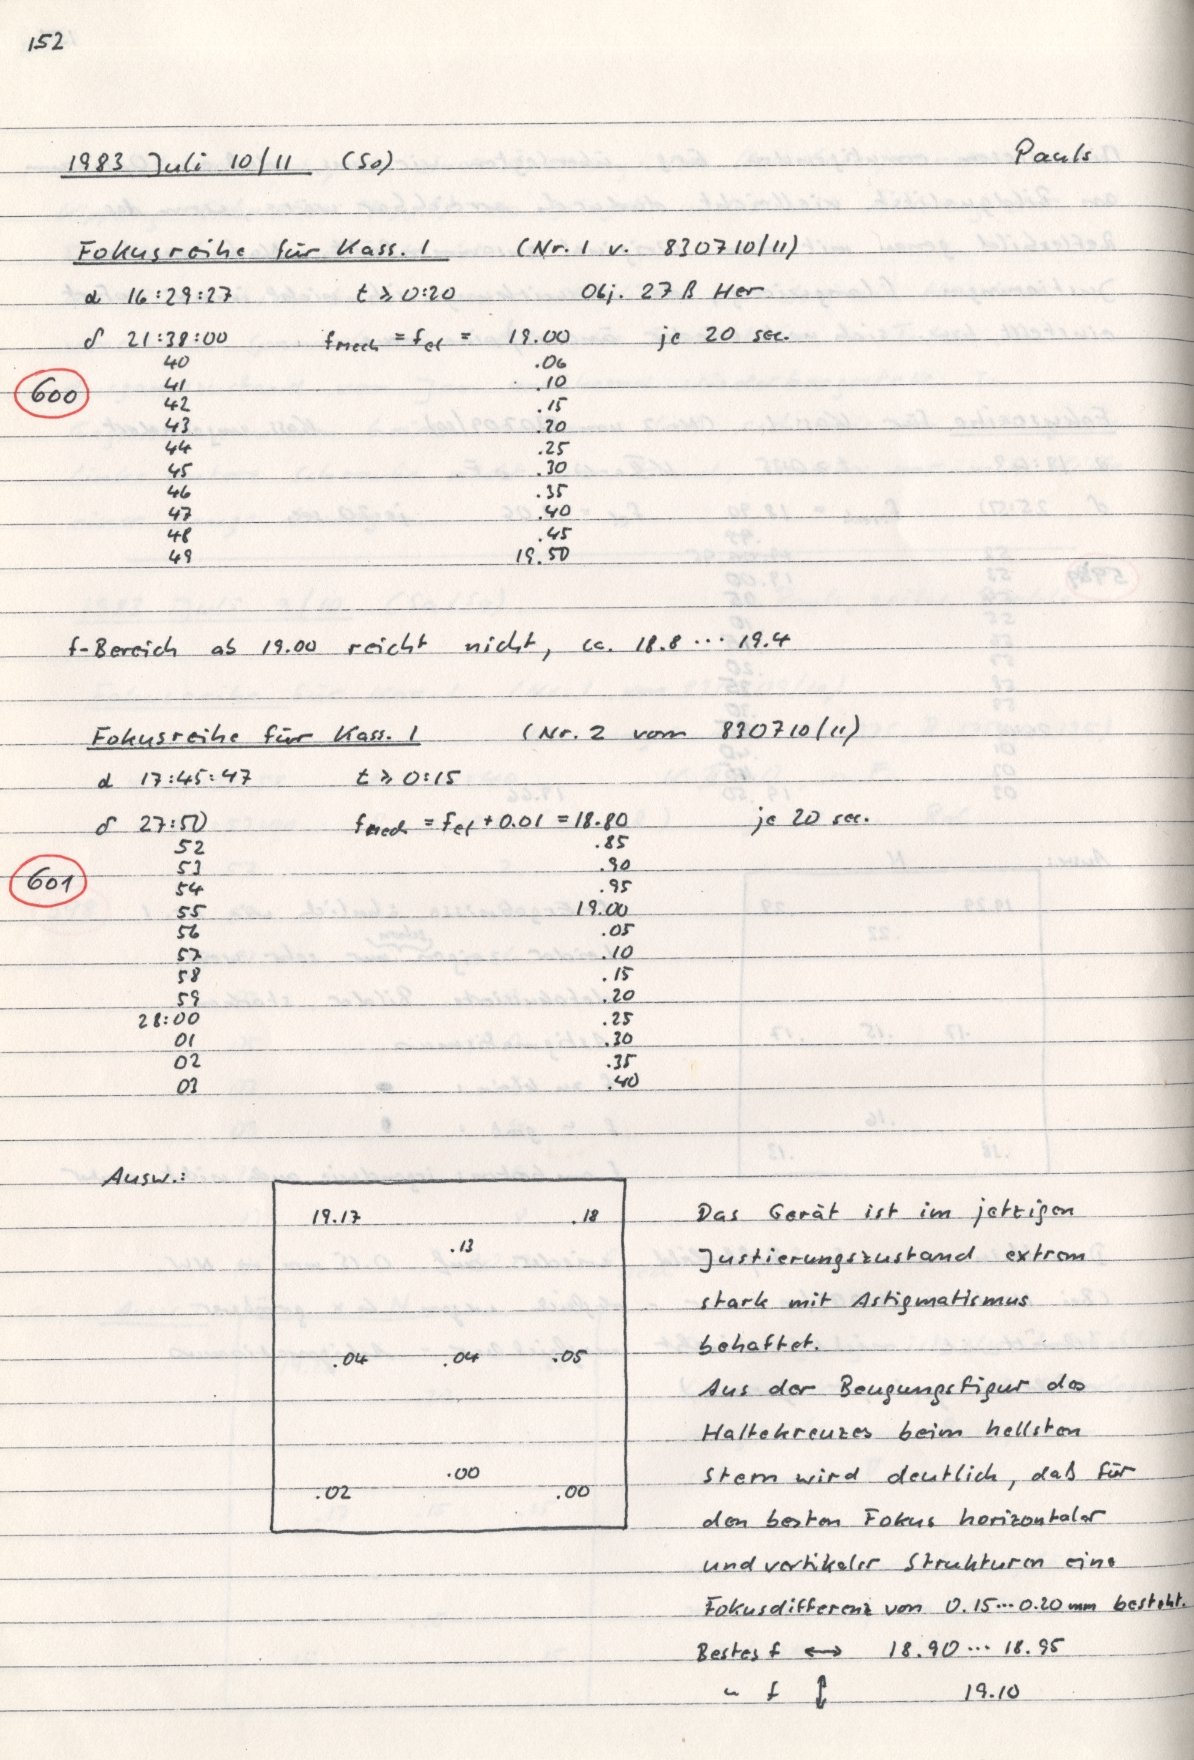 152
1983 Juli 10/11 (So) Pauls
Fokusreihe für Kass. 1 (Nr. 1 v. 830710/11)
α 16:29:27 t ≥ 0:20 Obj. 27 β Her
δ 21:38:00 fmech = fel = 19.00 je 20 sec.
40 .06
600 41 .10
42 .15
43 .20
44 .25
45 .30
46 .35
47 .40
48 .45
49 19.50
f-Bereich ab 19.00 reicht nicht, ca. 18.8 ... 19.4
Fokusreihe für Kass. 1 (Nr. 2 vom 830710/11)
α 17:45:47 t ≥ 0:15
δ 27:50 fmech = fel + 0.01 = 18.80 je 20 sec.
52 .85
53 .90
601 54 .95
55 19.00
56 .05
57 .10
58 .15
59 .20
28:00 .25
01 .30
02 .35
03 .40
Ausw.:
19.17 .18
.13
.04 .04 .05
.00
.02 .00
Das Gerät ist im jetzigen
Justierungszustand extrem
stark mit Astigmatismus
behaftet.
Aus der Beugungsfigur des
Haltekreuzes beim hellsten
Stern wird deutlich, daß für
den besten Fokus horizontaler
und vertikaler Strukturen eine
Fokusdifferenz von 0.15...0.20 mm besteht.
Bestes f ↔ 18.90 ... 18.95
" f ↕ 19.10